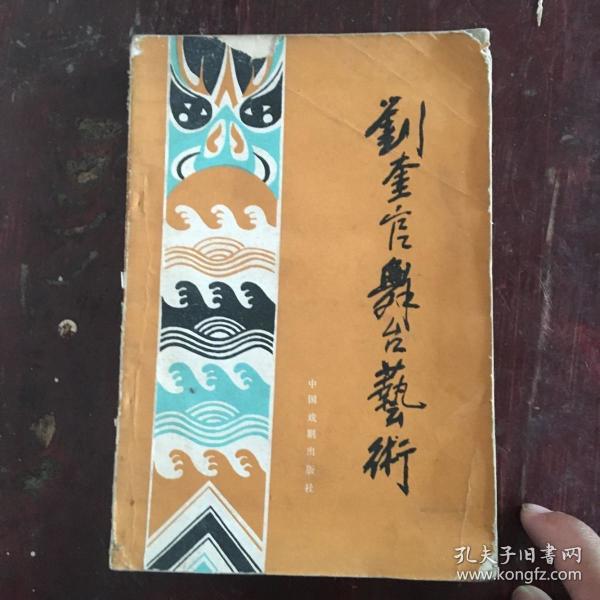 劉奎官舞台藝術
中国戏剧出版社
孔夫子旧书网
www.kongfz.com